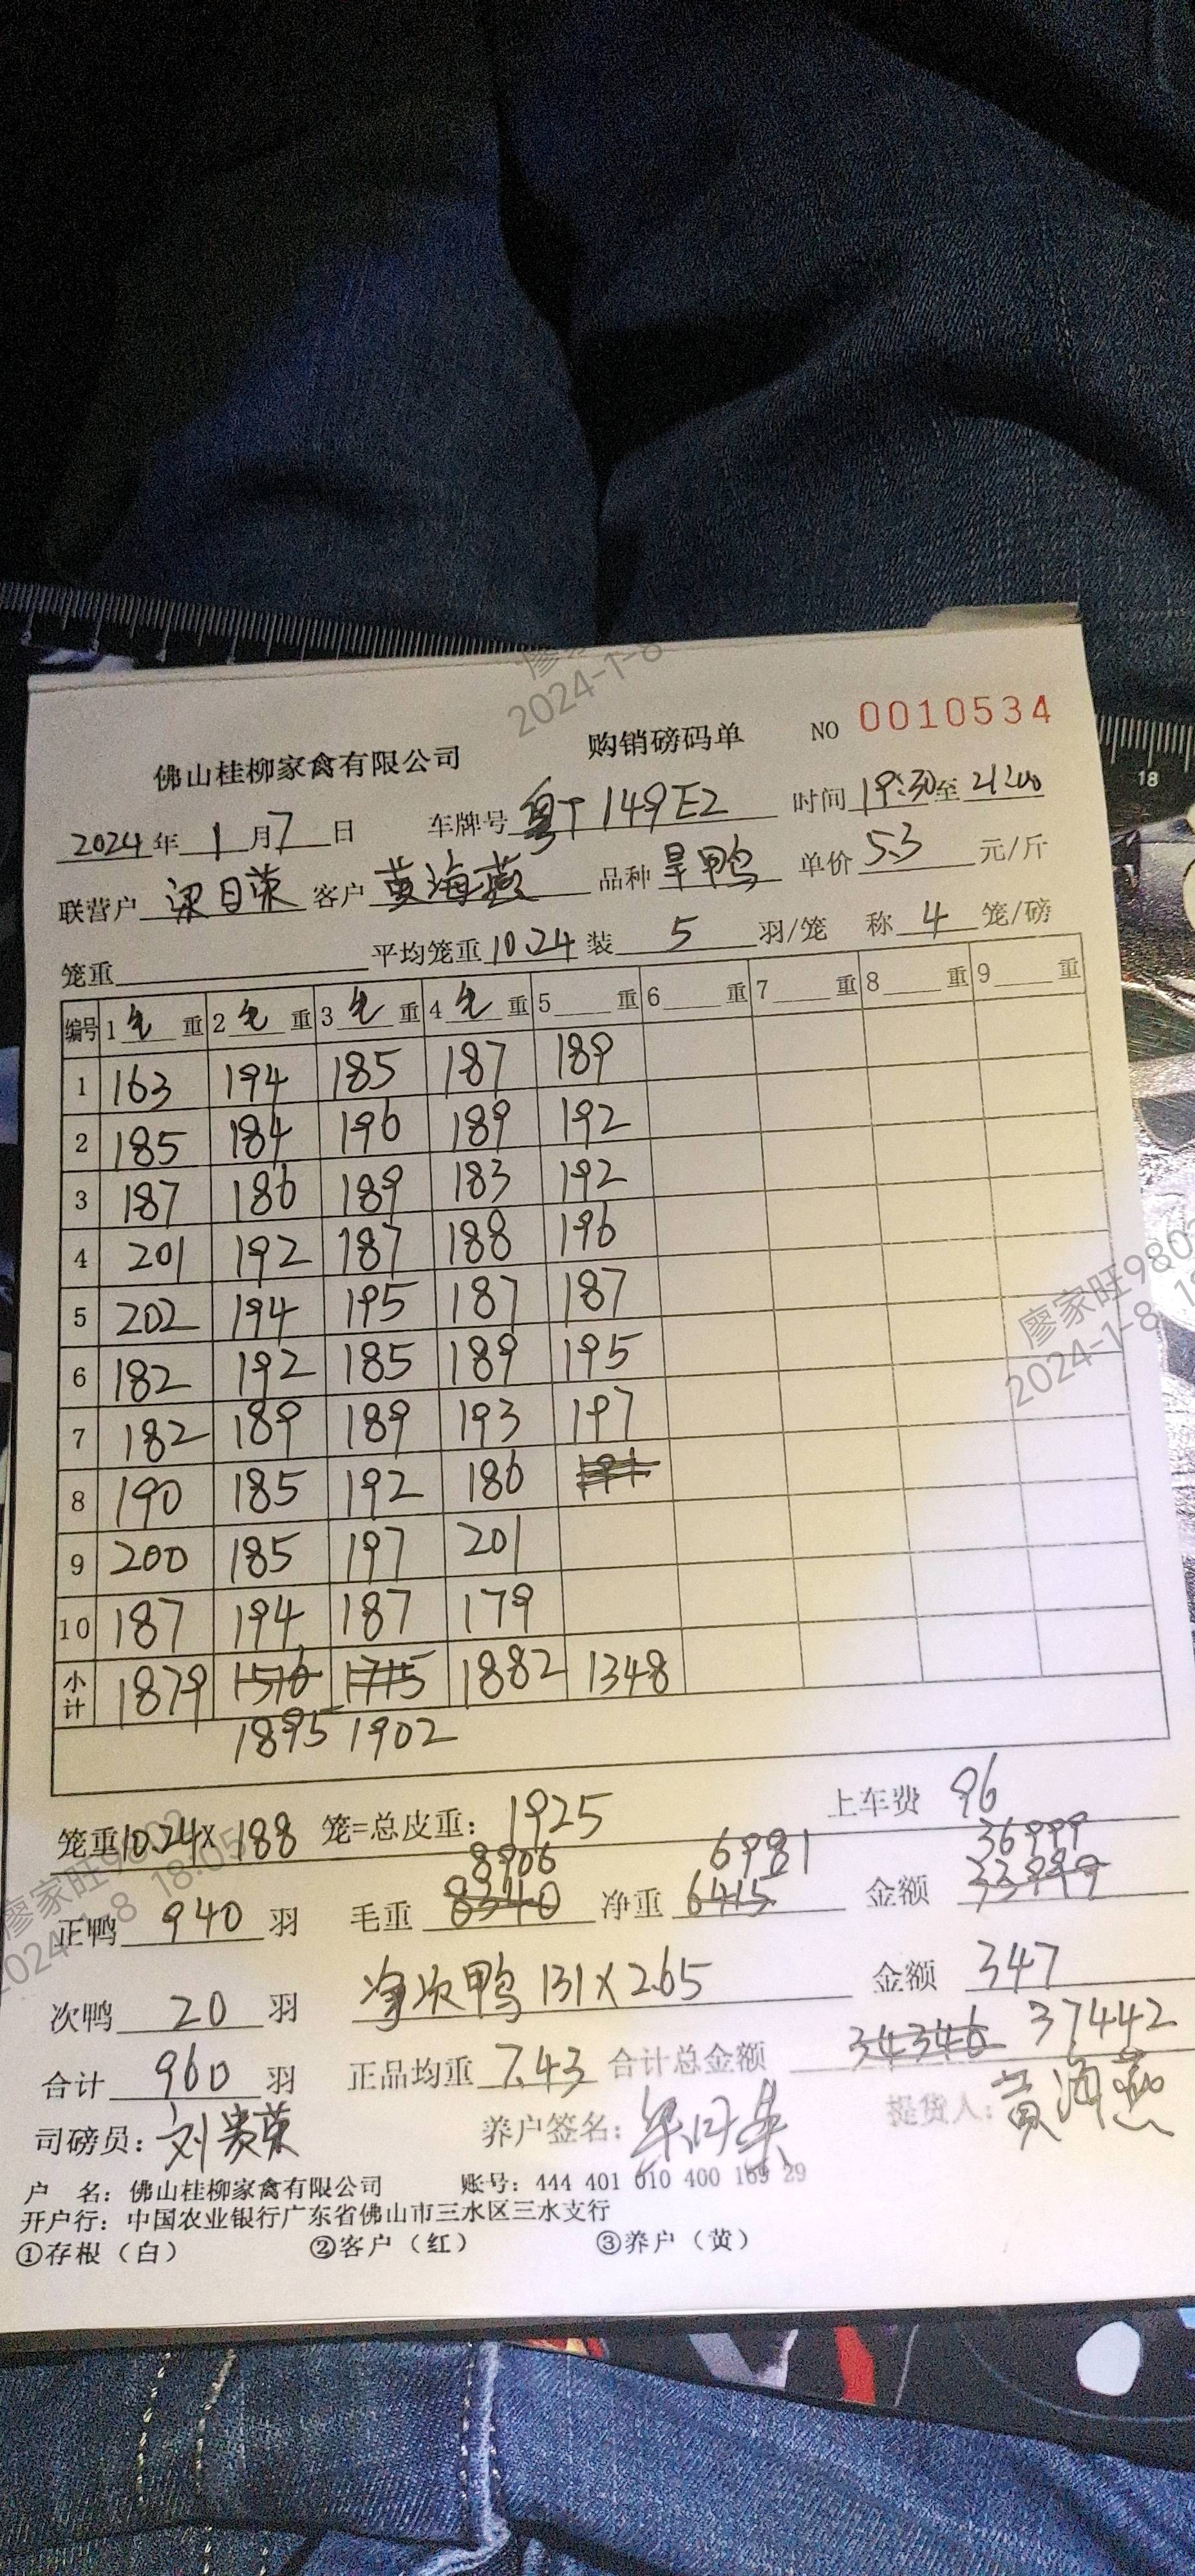 廖家
2024-1-8
佛山桂柳家禽有限公司 购销磅码单 NO 0010534
2024年 1 月 7 日 车牌号 粤T 149E2 时间 19:30至 21:00
联营户 梁日荣 客户 黄海燕 品种 旱鸭 单价 5.3 元/斤
笼重 平均笼重 10.24 装 5 羽/笼 称 4 笼/磅
编号 1 毛 重 2 毛 重 3 毛 重 4 毛 重 5 重 6 重 7 重 8 重 9 重
1 163 194 185 187 189
2 185 184 196 189 192
3 187 186 189 183 192
4 201 192 187 188 196
5 202 194 195 187 187
6 182 192 185 189 195
7 182 189 189 193 197
8 190 185 192 186
9 200 185 197 201
10 187 194 187 179
小计 1879 1576 1715 1882 1348
1895 1902
笼重10.24× 188 笼=总皮重: 1925 上车费 96
8906 6981 36999
正鸭 940 羽 毛重 8340 净重 6415 金额 33999
次鸭 20 羽 净次鸭 131×2.65 金额 347
合计 960 羽 正品均重 7.43 合计总金额 34346 37442
司磅员: 刘贵荣 养户签名: 提货人: 黄海燕
户 名: 佛山桂柳家禽有限公司 账号: 444 401 010 400 169 29
开户行: 中国农业银行广东省佛山市三水区三水支行
①存根（白） ②客户（红） ③养户（黄）
廖家旺980
2024-1-8 1
廖家旺980
2024-1-8 18:05